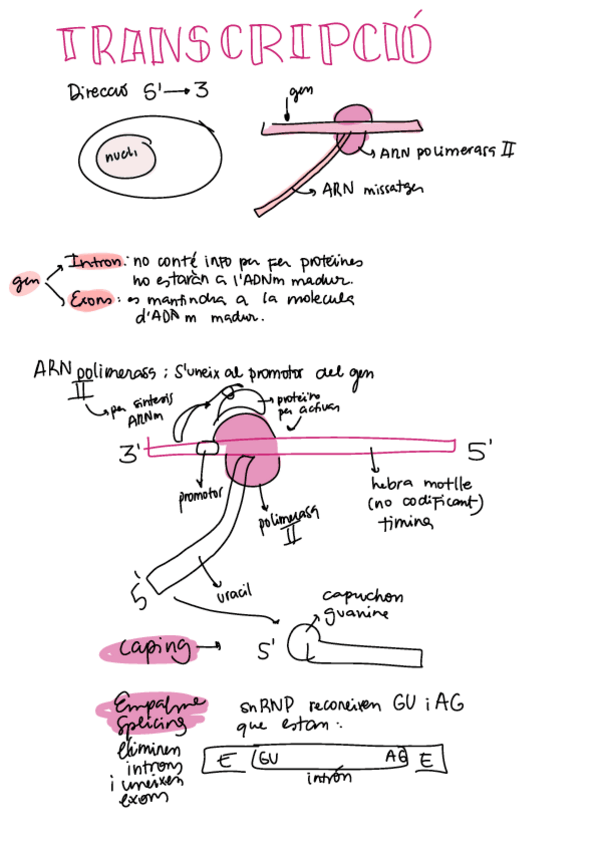 TRANSCRIPCIÓ
Direcció 5' → 3
nucli
gen
ARN polimerasa II
ARN missatger
gen
Intron: no conté info per fer proteïnes
no estaràn a l'ADNm madur.
Exons: es mantindra a la molecula
d'ADN m madur.
ARN polimerasa: s'uneix al promotor del gen
II
per sintesis
ARNm
proteïna
per activar
3'
5'
promotor
polimerasa
II
hebra motlle
(no codificant)
timina
5'
uracil
capuchon
guanine
caping → 5'
Empalme
splicing
snRNP reconeixen GU i AG
que estan:
eliminen
introns
i uneixen
exons
E GU AG E
intrón